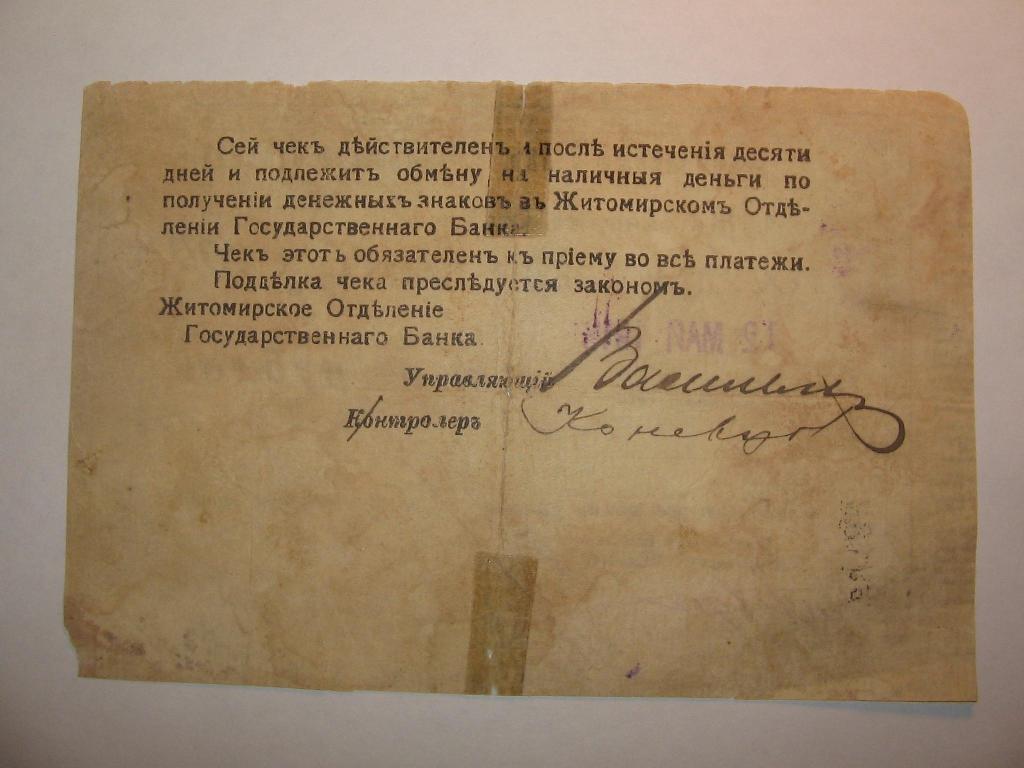 Сей чекъ дѣйствителенъ и послѣ истеченія десяти
дней и подлежитъ обмѣну на наличныя деньги по
полученіи денежныхъ знаковъ въ Житомирскомъ Отдѣ-
леніи Государственнаго Банка.
Чекъ этотъ обязателенъ къ пріему во всѣ платежи.
Поддѣлка чека преслѣдуется закономъ.
Житомирское Отдѣленіе
Государственнаго Банка
12 МАЙ
Управляющій
Контролеръ